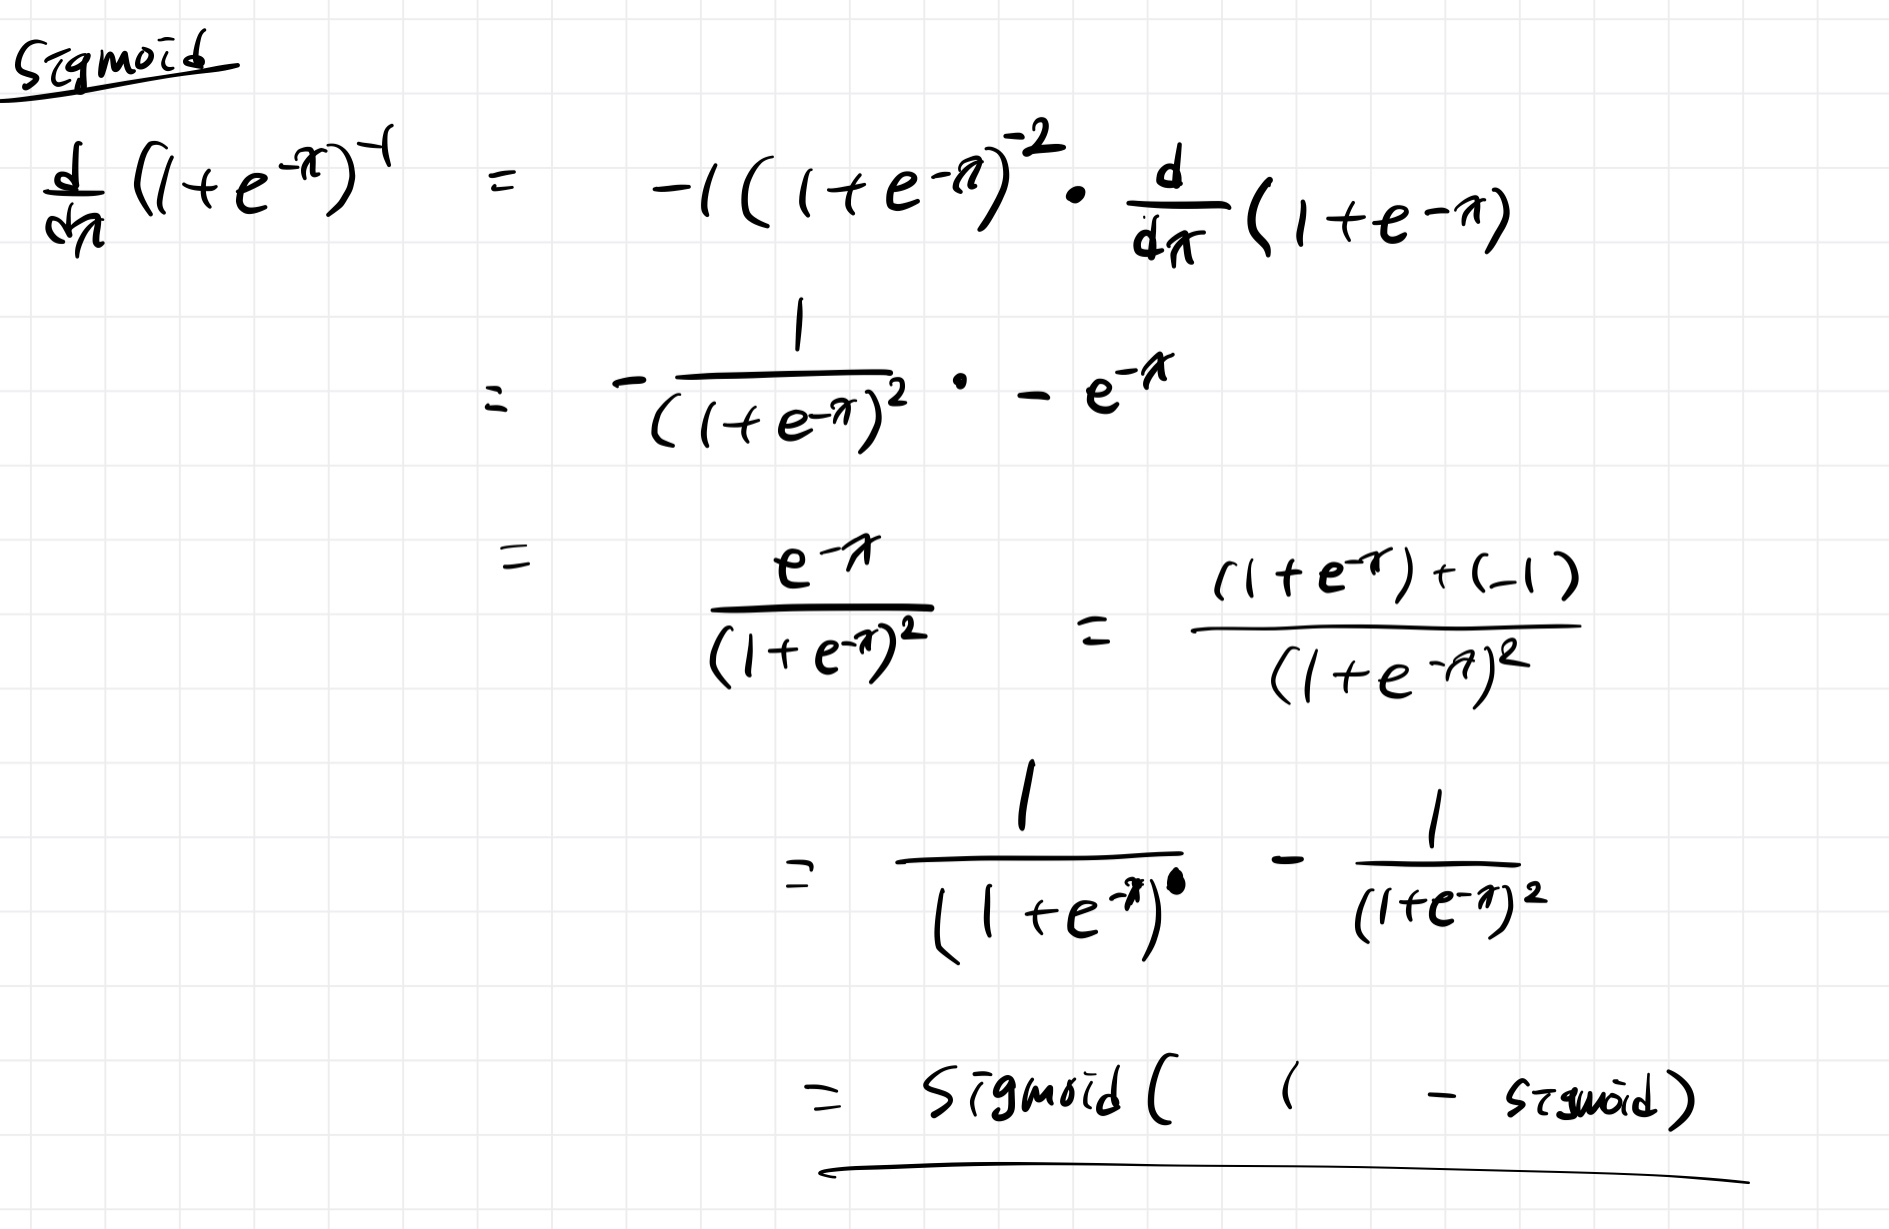 Sigmoid
d/dx (1+e^-x)^-1 = -1(1+e^-x)^-2 · d/dx (1+e^-x)
= - 1/(1+e^-x)^2 · - e^-x
= e^-x/(1+e^-x)^2 = ((1+e^-x)+(-1))/(1+e^-x)^2
= 1/(1+e^-x) - 1/(1+e^-x)^2
= Sigmoid( 1 - Sigmoid)